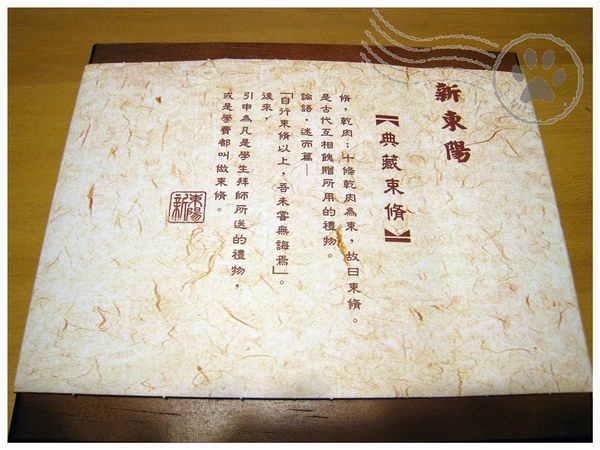 新東陽
【典藏束脩】
脩，乾肉；十條乾肉為束，故曰束脩。
是古代互相餽贈所用的禮物。
論語．述而篇—
「自行束脩以上，吾未嘗無誨焉」。
後來，
引申為凡是學生拜師所送的禮物，
或是學費都叫做束脩。
新東陽